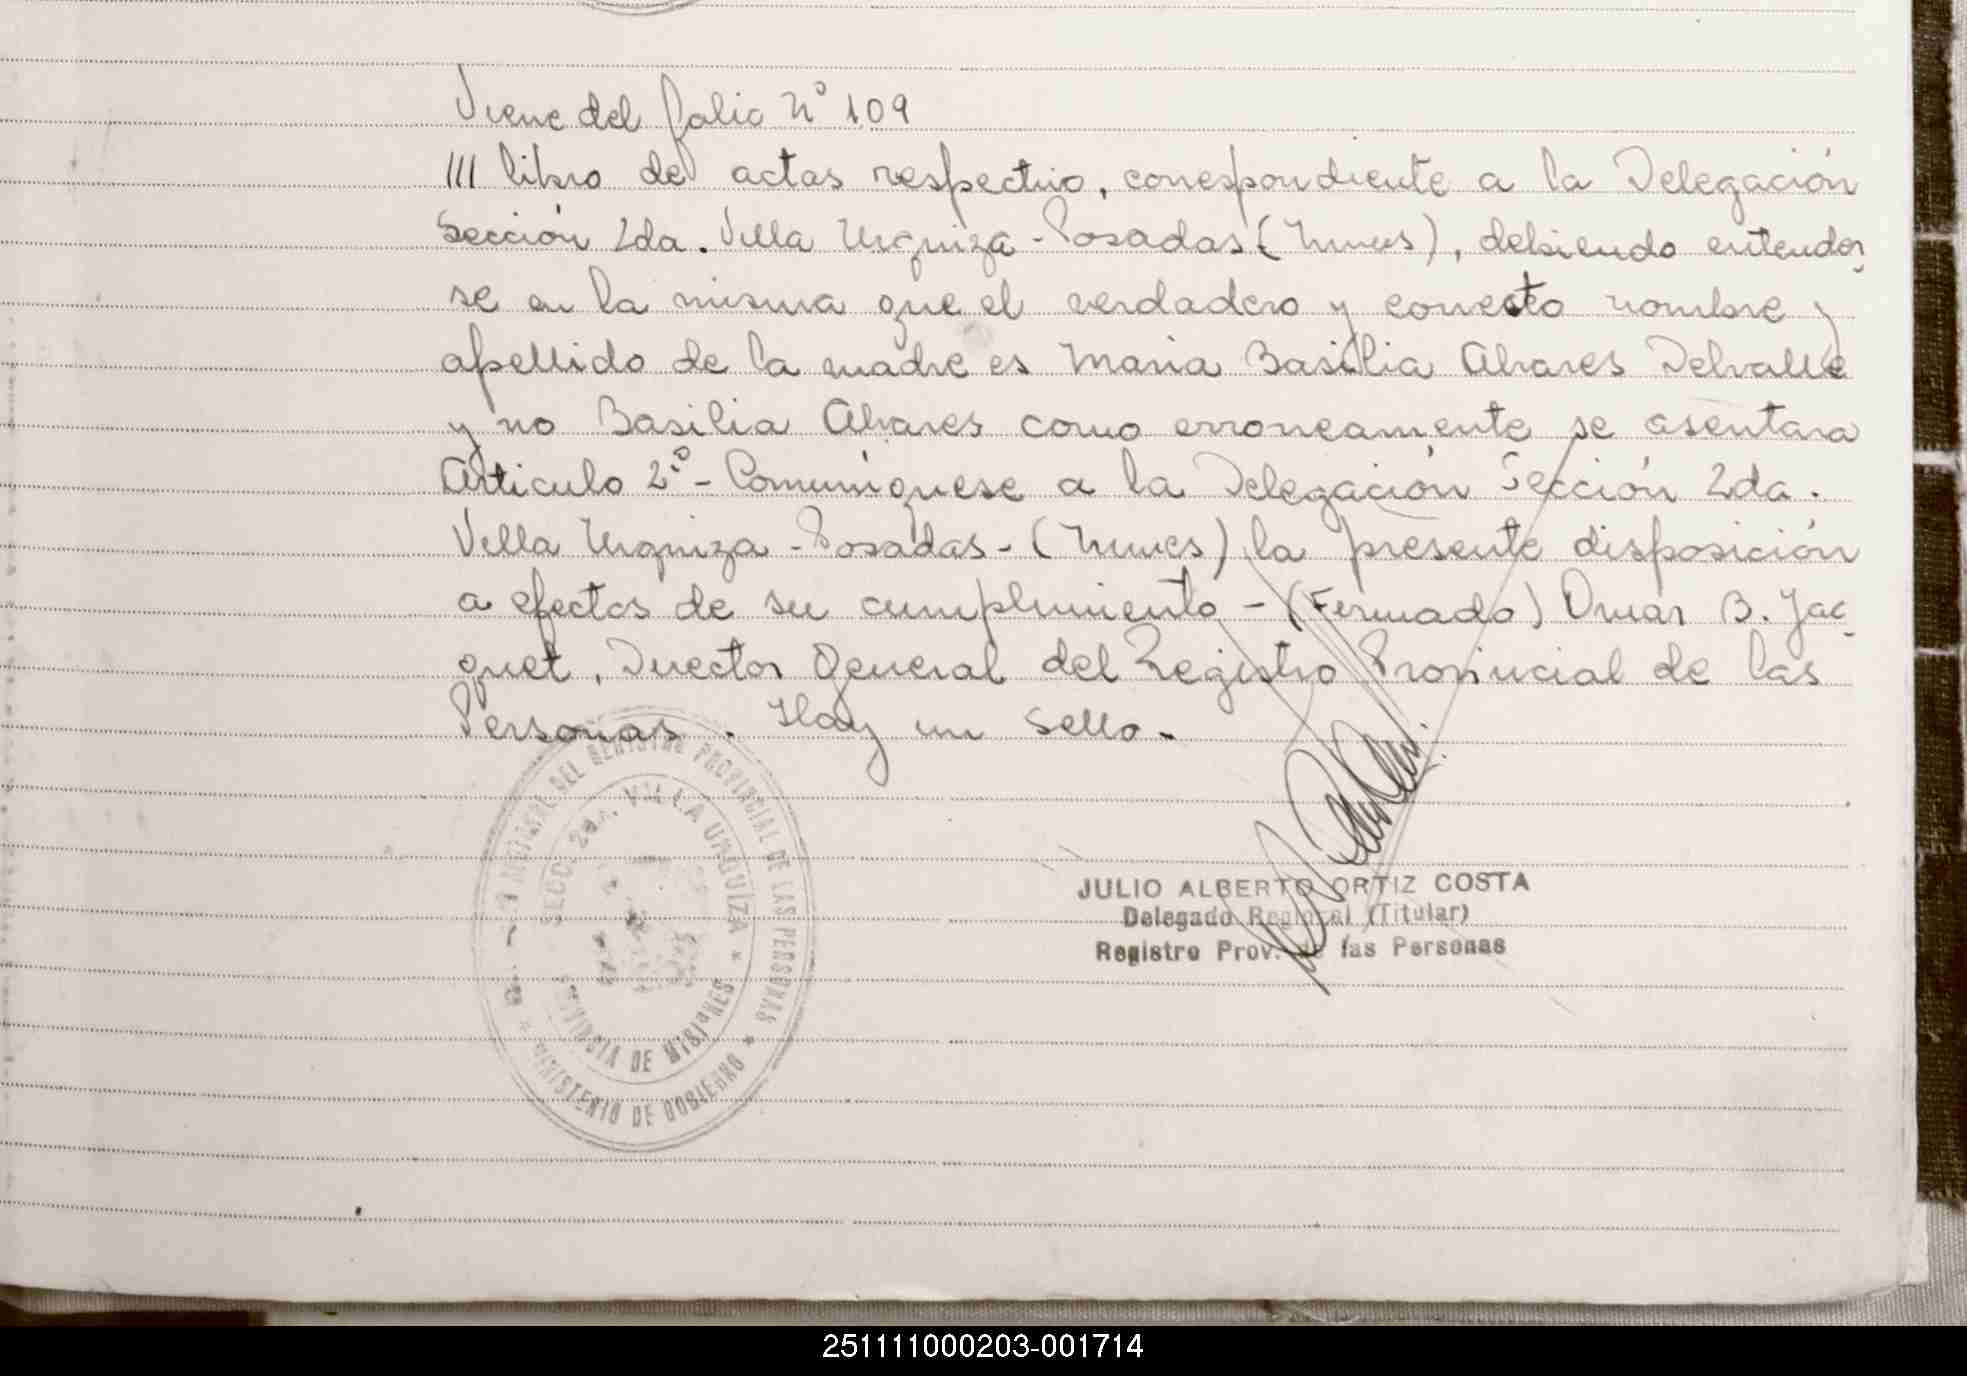 Viene del folio Nº 109
III libro de actas respectivo, correspondiente a la Delegación
Sección 2da. Villa Urquiza - Posadas (Mnes), debiendo entender
se en la misma que el verdadero y correcto nombre y
apellido de la madre es Maria Basilia Alvares Delvalle
y no Basilia Alvares como erroneamente se asentara
Articulo 2º - Comuníquese a la Delegación Sección 2da.
Villa Urquiza - Posadas - (Mnes) la presente disposición
a efectos de su cumplimiento - (Firmado) Omar B. Jac-
quet, Director General del Registro Provincial de las
Personas. Hay un sello.-
DEL REGISTRO PROVINCIAL DE LAS PERSONAS
SECC. 2da. VILLA URQUIZA *
PROVINCIA DE MISIONES
* MINISTERIO DE GOBIERNO *
JULIO ALBERTO ORTIZ COSTA
Delegado Regional (Titular)
Registro Prov. de las Personas
251111000203-001714